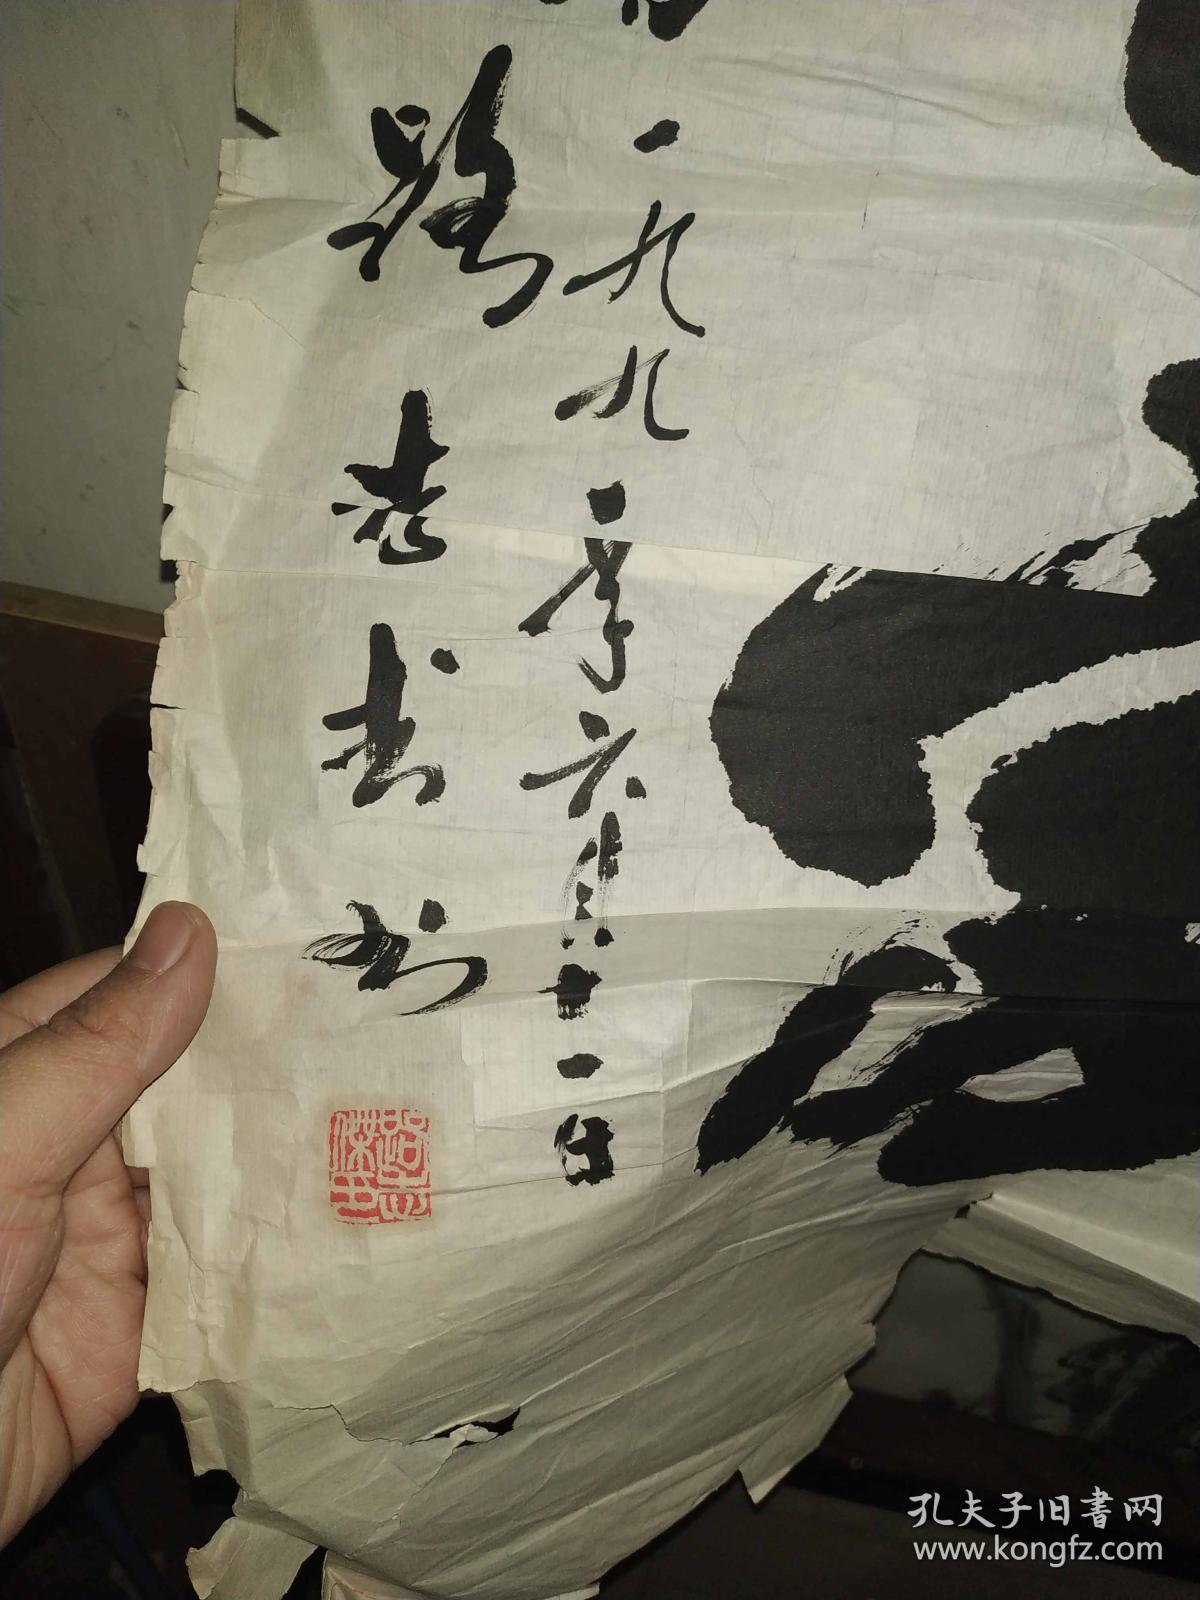 一九九一年六月十一日
路志书
孔夫子旧書网
www.kongfz.com